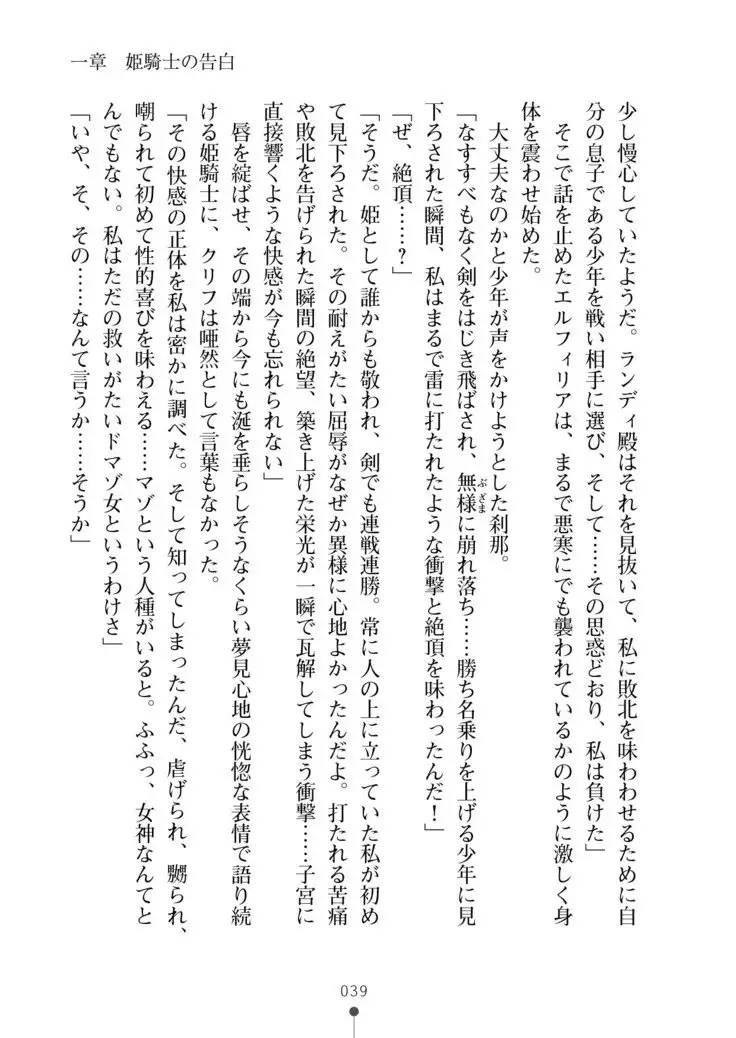 一章　姫騎士の告白
少し慢心していたようだ。ランディ殿はそれを見抜いて、私に敗北を味わわせるために自
分の息子である少年を戦い相手に選び、そして……その思惑どおり、私は負けた」
そこで話を止めたエルフィリアは、まるで悪寒にでも襲われているかのように激しく身
体を震わせ始めた。
大丈夫なのかと少年が声をかけようとした刹那。
「なすすべもなく剣をはじき飛ばされ、無様に崩れ落ち……勝ち名乗りを上げる少年に見
下ろされた瞬間、私はまるで雷に打たれたような衝撃と絶頂を味わったんだ！」
「ぜ、絶頂……？」
「そうだ。姫として誰からも敬われ、剣でも連戦連勝。常に人の上に立っていた私が初め
て見下ろされた。その耐えがたい屈辱がなぜか異様に心地よかったんだよ。打たれる苦痛
や敗北を告げられた瞬間の絶望、築き上げた栄光が一瞬で瓦解してしまう衝撃……子宮に
直接響くような快感が今も忘れられない」
唇を綻ばせ、その端から今にも涎を垂らしそうなくらい夢見心地の恍惚な表情で語り続
ける姫騎士に、クリフは唖然として言葉もなかった。
「その快感の正体を私は密かに調べた。そして知ってしまったんだ、虐げられ、嬲られ、
嘲られて初めて性的喜びを味わえる……マゾという人種がいると。ふふっ、女神なんてと
んでもない。私はただの救いがたいドマゾ女というわけさ」
「いや、そ、その……なんて言うか……そうか」
ぶざま
039